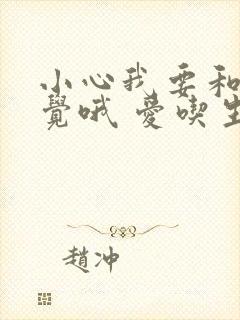 小心我要和
覺哦 愛喫生
趙沖